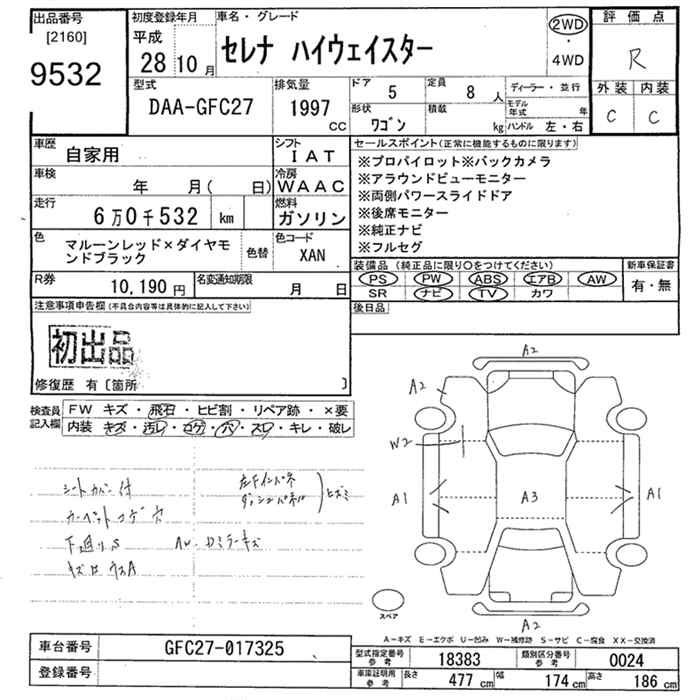 出品番号
[2160]
9532
初度登録年月
平成
28年10月
車名・グレード
セレナ ハイウェイスター
2WD
・
4WD
評価点
R
外装 内装
C C
型式
DAA-GFC27
排気量
1997
CC
ドア 5
定員 8人
形状 ワゴン
積載 kg
ディーラー・並行
モデル年式 年
ハンドル 左・右
車歴 自家用
シフト IAT
車検 年 月( 日)
冷房 WAAC
走行 6万0千532 km
燃料 ガソリン
色 マルーンレッド×ダイヤモ
ンドブラック
色替
色コード XAN
R券 10,190円
名変通知期限 月 日
セールスポイント(正常に機能するものに限ります)
※プロパイロット※バックカメラ
※アラウンドビューモニター
※両側パワースライドドア
※後席モニター
※純正ナビ
※フルセグ
装備品 (純正品に限り○をつけてください)
PS PW ABS エアB AW
SR ナビ TV カワ
新車保証書
有・無
後日品
注意事項申告欄(不具合内容等は具体的に記入して下さい)
初出品
修復歴 有〔箇所 〕
検査員
記入欄
FW キズ・飛石・ヒビ割・リペア跡・×要
内装・キズ・汚レ・コゲ・穴・スレ・キレ・破レ
シートカバー付
カーペットコゲ穴
下廻りS
左Fインパネ
ダッシュパネル
ヒズミ
A2
A2
W2
A1
A3
A1
A2
スペア
A-キズ E-エクボ U-凹み W-補修跡 S-サビ C-腐食 XX-交換済
車台番号 GFC27-017325
登録番号
型式指定番号
参考
18383
類別区分番号
参考
0024
車庫証明用
参考
長さ 477cm 幅 174cm 高さ 186cm